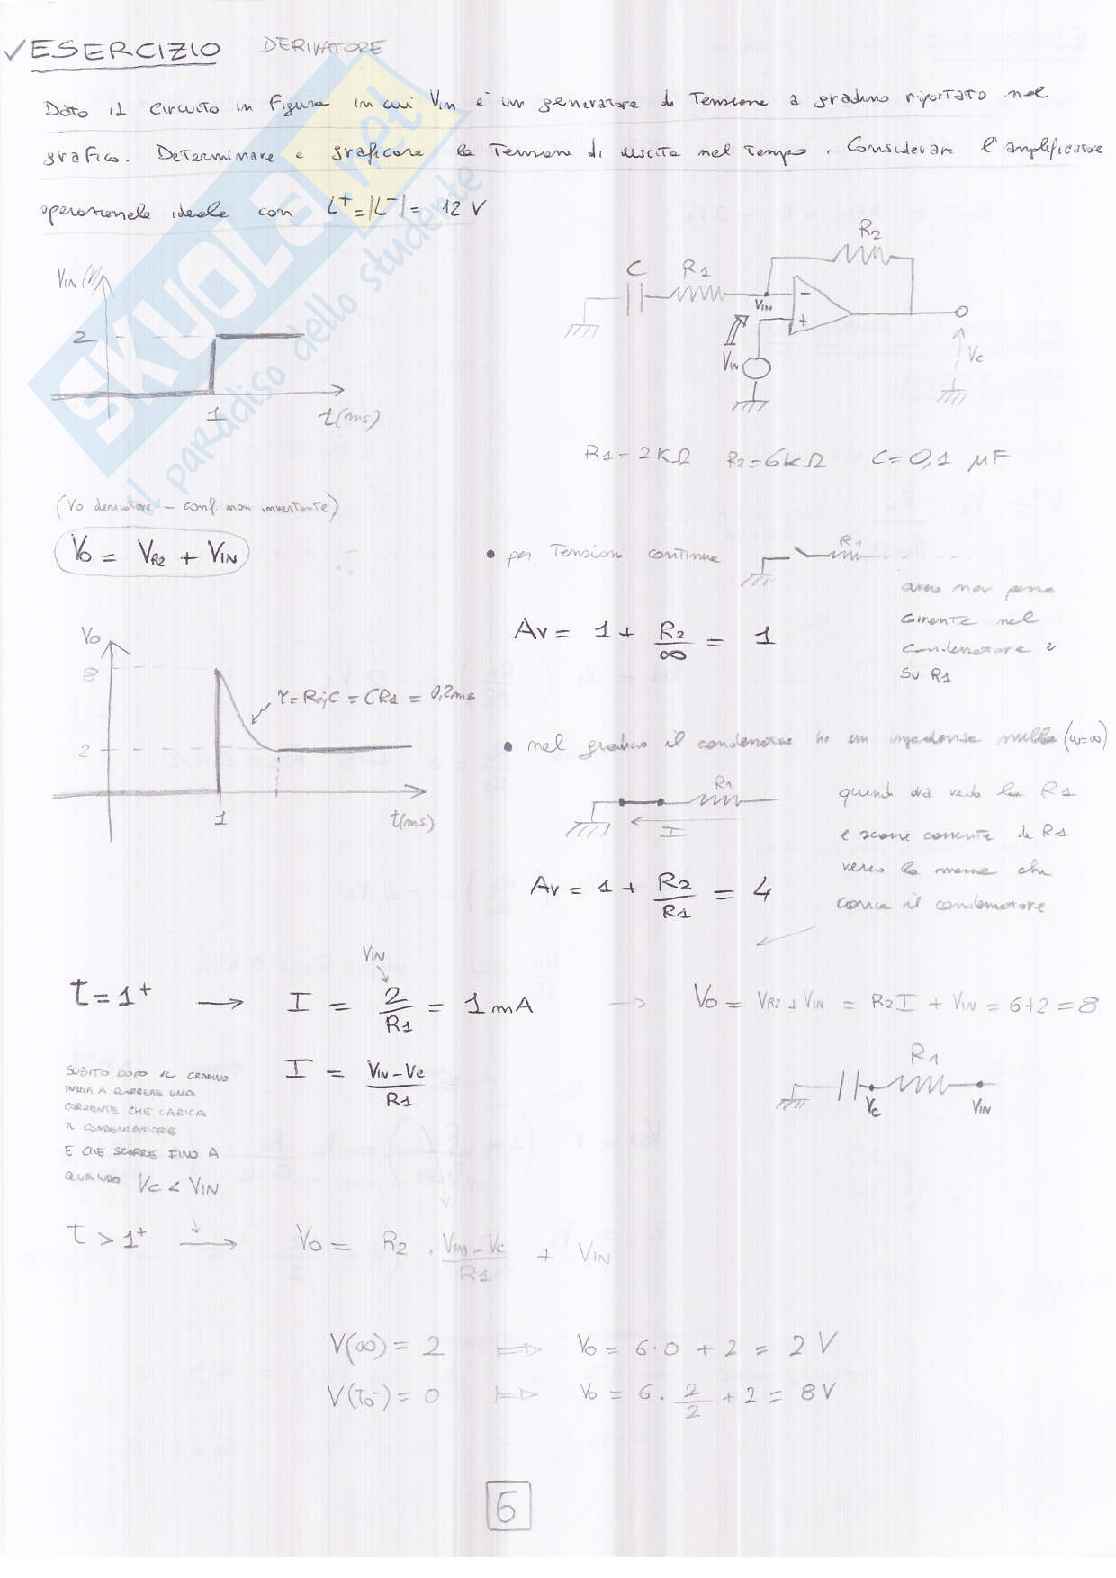 ✓ESERCIZIO DERIVATORE
Dato il circuito in figura in cui Vin è un generatore di tensione a gradino riportato nel
grafico. Determinare e graficare la tensione di uscita nel tempo. Considerare l'amplificatore
operazionale ideale con L⁺=|L⁻|= 12 V
SKUOLA.net
il paradiso dello studente
VIN (V)
2
1
t(ms)
C R1 R2
VIN
- +
VIN
Vc
R1=2KΩ R2=6KΩ C=0,1 μF
(Vo derivatore - conf. non invertente)
Vo = VR2 + VIN
• per tensioni continue
R1
Av = 1 + R2/∞ = 1
corrente nel
condensatore e
su R1
Vo
8
2
1
t(ms)
τ=ReqC = CR1 = 0,2ms
• nel gradino il condensatore ha un impedenza nulla (ω=∞)
R1
I
quindi R1
e scorre corrente da R1
verso la massa che
carica il condensatore
Av = 1 + R2/R1 = 4
VIN
t=1⁺ → I = 2/R1 = 1mA → Vo = VR2+VIN = R2I + VIN = 6+2=8
I = VIN-Vc/R1
R1
Vc VIN
SUBITO DOPO IL GRADINO
INIZIA A SCORRERE UNA
CORRENTE CHE CARICA
IL CONDENSATORE
E CHE SCORRE FINO A
QUANDO Vc < VIN
t > 1⁺ → Vo = R2 · VIN-Vc/R1 + VIN
V(∞) = 2 ⇒ Vo = 6·0 + 2 = 2 V
V(t0⁻) = 0 ⇒ Vo = 6 · 2/2 + 2 = 8V
6